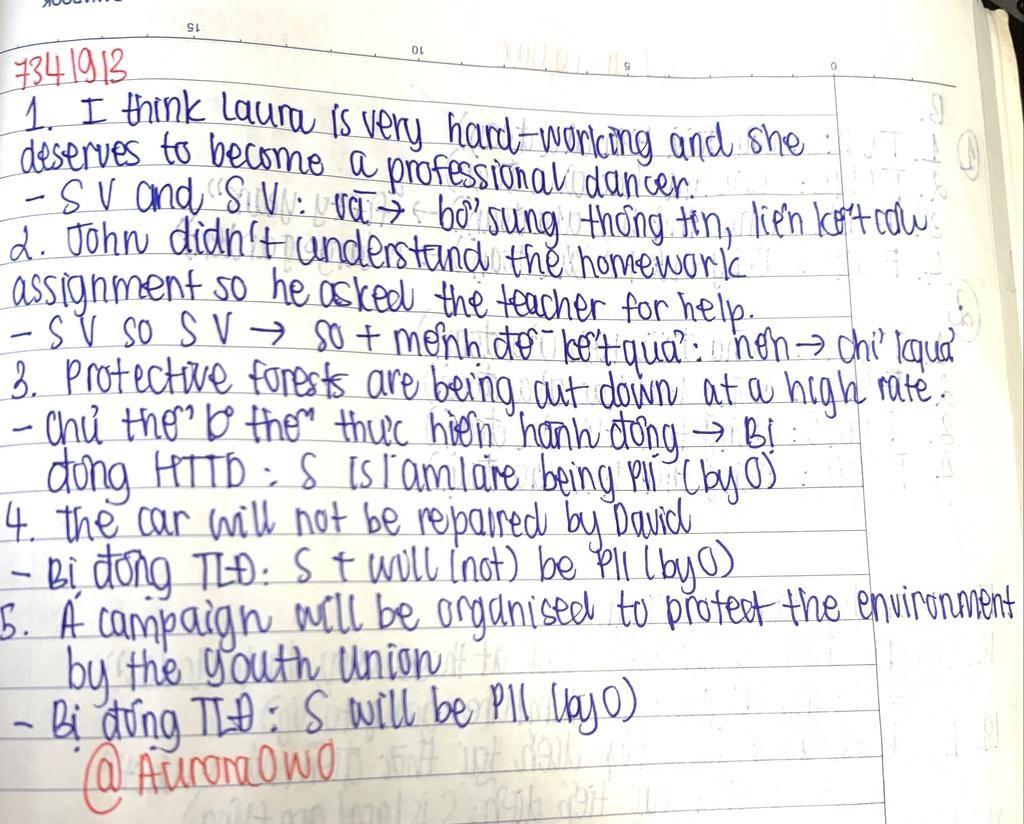 15 10 5 0
7341913
1. I think Laura is very hard-working and she
deserves to become a professional dancer.
- S V and S V: và → bổ sung thông tin, liên kết câu
2. John didn't understand the homework
assignment so he asked the teacher for help.
- S V so S V → so + mệnh đề kết quả: nên → chỉ kquả
3. Protective forests are being cut down at a high rate.
- Chủ thể ko thể thực hiện hành động → Bị
động HTTD: S is/am/are being PII (by O)
4. the car will not be repaired by David
- Bị động TLĐ: S + will (not) be PII (by O)
5. A campaign will be organised to protect the environment
by the youth union
- Bị động TLĐ: S will be PII (by O)
@AuroraOwO